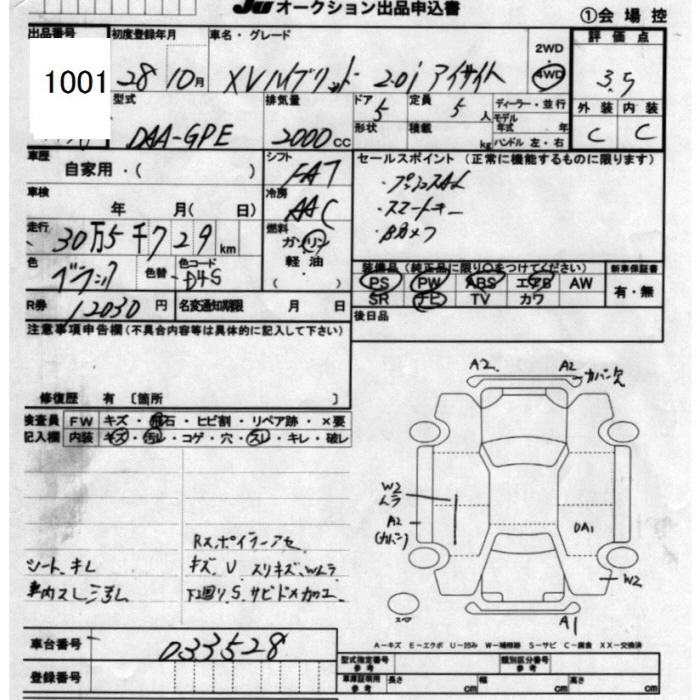 Ju オークション出品申込書
①会場控
出品番号 初度登録年月 車名・グレード 評価点
1001 28 10月 XVハイブリット 2.0i アイサイト 2WD 4WD 3.5
型式 排気量 ドア 定員 ディーラー・並行 外装 内装
DAA-GPE 2000cc 5 5人 モデル年式 年 C C
形状 積載 kg ハンドル 左・右
車歴 シフト セールスポイント (正常に機能するものに限ります)
自家用・( ) FAT ・プッシュスタート
車検 冷房 ・スマートキー
年 月( 日) AAC
走行 燃料
30万5千729km ガソリン
色 色替 色コード 軽油
ブラック D4S ( )
装備品 (純正品に限り○をつけてください) 新車保証書
PS PW ABS エアB AW 有・無
SR ナビ TV カワ
R券 12030円 名変通知期限 月 日
後日品
注意事項申告欄(不具合内容等は具体的に記入して下さい)
修復歴 有〔箇所 〕
検査員 FW キズ・飛石・ヒビ割・リペア跡・×要
記入欄 内装 キズ・汚レ・コゲ・穴・スレ・キレ・破レ
A2 A2 カバー欠
W2
ムラ
A2
(カバー)
DA1
W2
A1
Rスポイラーアセ
シート、キレ キズ、U スリキズ、Wムラ
車内スレ 下回り、S、サビドメカコエ
車台番号 033528
登録番号
A−キズ E−エクボ U−凹み W−補修跡 S−サビ C−腐食 XX−交換済
型式指定番号 参考 類別区分番号 参考
車庫証明用 参考 長さ cm 幅 cm 高さ cm